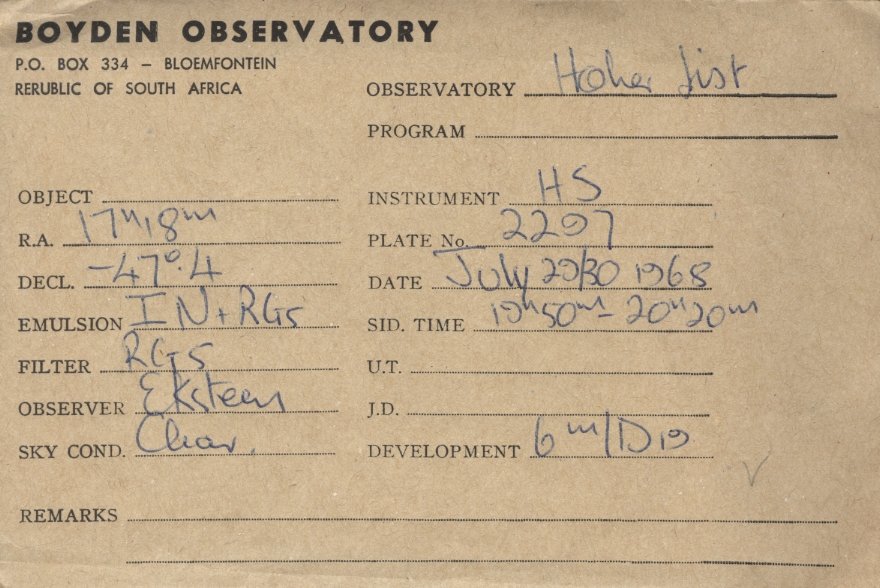 BOYDEN OBSERVATORY
P.O. BOX 334 – BLOEMFONTEIN
RERUBLIC OF SOUTH AFRICA
OBSERVATORY Hoher List
PROGRAM
OBJECT
R.A. 17ʰ18ᵐ
DECL. -47°.4
EMULSION IN + RG5
FILTER RG5
OBSERVER Eksteen
SKY COND. Clear.
INSTRUMENT HS
PLATE No. 2297
DATE July 29/30 1968
SID. TIME 19ʰ50ᵐ - 20ʰ20ᵐ
U.T.
J.D.
DEVELOPMENT 6ᵐ/D19
REMARKS